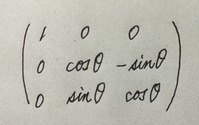 1 0 0
0 cosθ -sinθ
0 sinθ cosθ